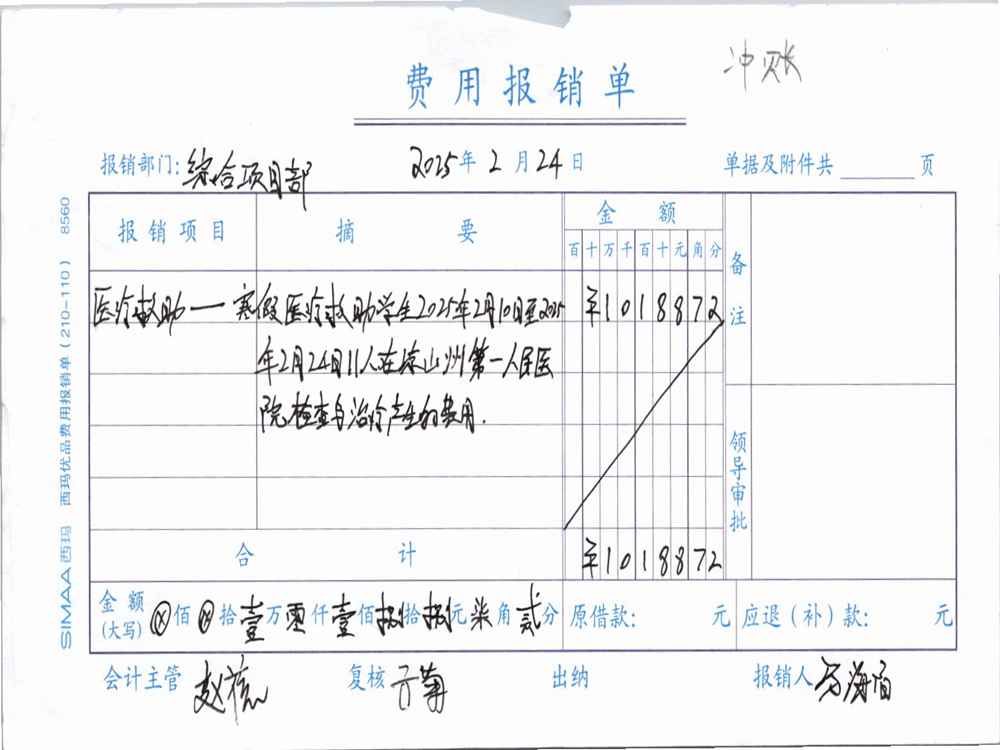 冲账
费用报销单
报销部门：综合项目部 2025年 2月24日 单据及附件共 页
报销项目 摘要 金额 备注
百十万千百十元角分
医疗救助一 寒假医疗救助学生2025年2月10日至2025 ¥1018872
年2月24日11人在凉山州第一人民医
院检查与治疗产生的费用.
领导审批
合计 ¥1018872
金额(大写) ⊗佰⊗拾壹万零仟壹佰捌拾捌元柒角贰分 原借款： 元 应退（补）款： 元
会计主管 复核 出纳 报销人 马海
SIMAA西玛 西玛优品费用报销单（210-110） 8560